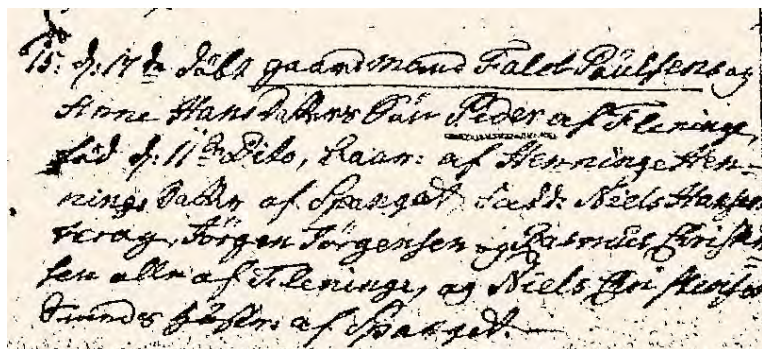 15. d: 17de döbt gaardmand Falet Paulsens og
Anne Hansdatters Sön Peder af Fleninge,
föd d: 11te Dito, baar: af Henninge Hen-
nings Datter af Spanget, Fadd: Niels Hansen
Jörgen Jörgensen og Rasmus Christen
sen alle af Fleninge, og Niels Christensen
af Spanget.